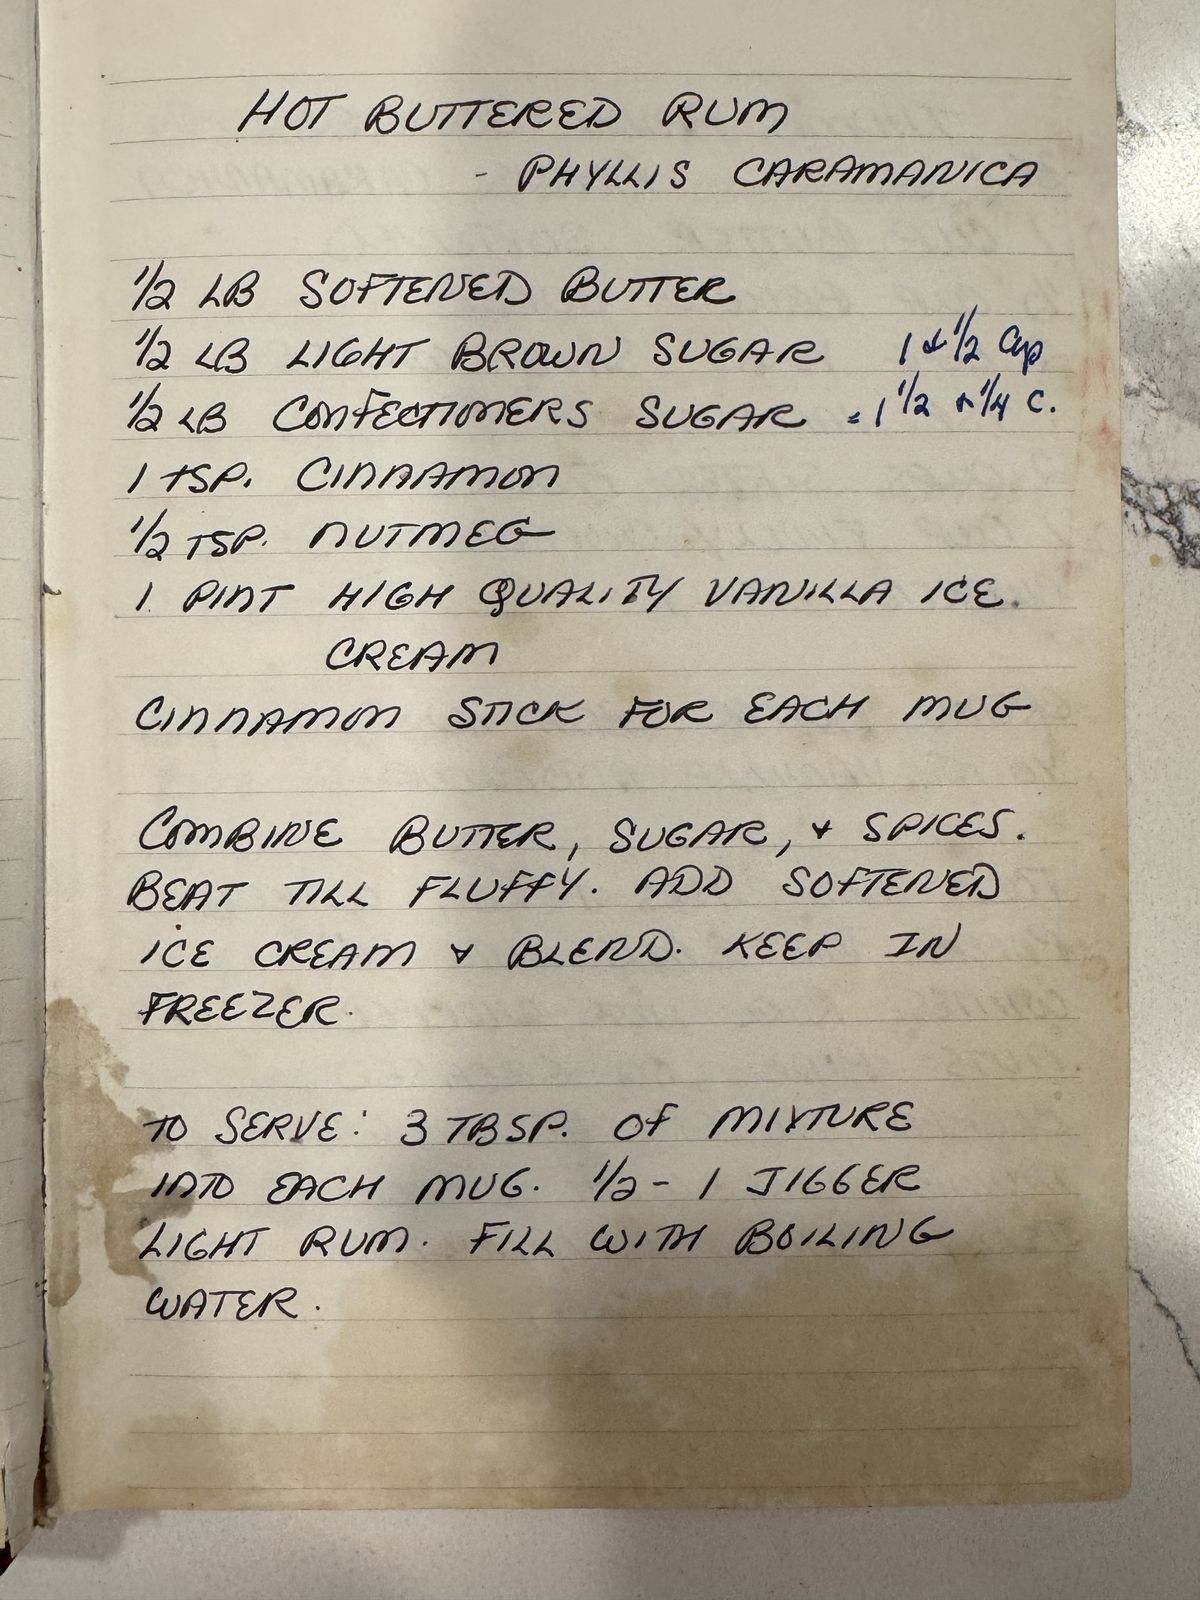 HOT BUTTERED RUM
- PHYLLIS CARAMANICA
1/2 LB SOFTENED BUTTER
1/2 LB LIGHT BROWN SUGAR 1 & 1/2 Cup
1/2 LB CONFECTIONERS SUGAR = 1 1/2 & 1/4 C.
1 TSP. CINNAMON
1/2 TSP. NUTMEG
1 PINT HIGH QUALITY VANILLA ICE
CREAM
CINNAMON STICK FOR EACH MUG
COMBINE BUTTER, SUGAR, & SPICES.
BEAT TILL FLUFFY. ADD SOFTENED
ICE CREAM & BLEND. KEEP IN
FREEZER.
TO SERVE: 3 TBSP. OF MIXTURE
INTO EACH MUG. 1/2 - 1 JIGGER
LIGHT RUM. FILL WITH BOILING
WATER.